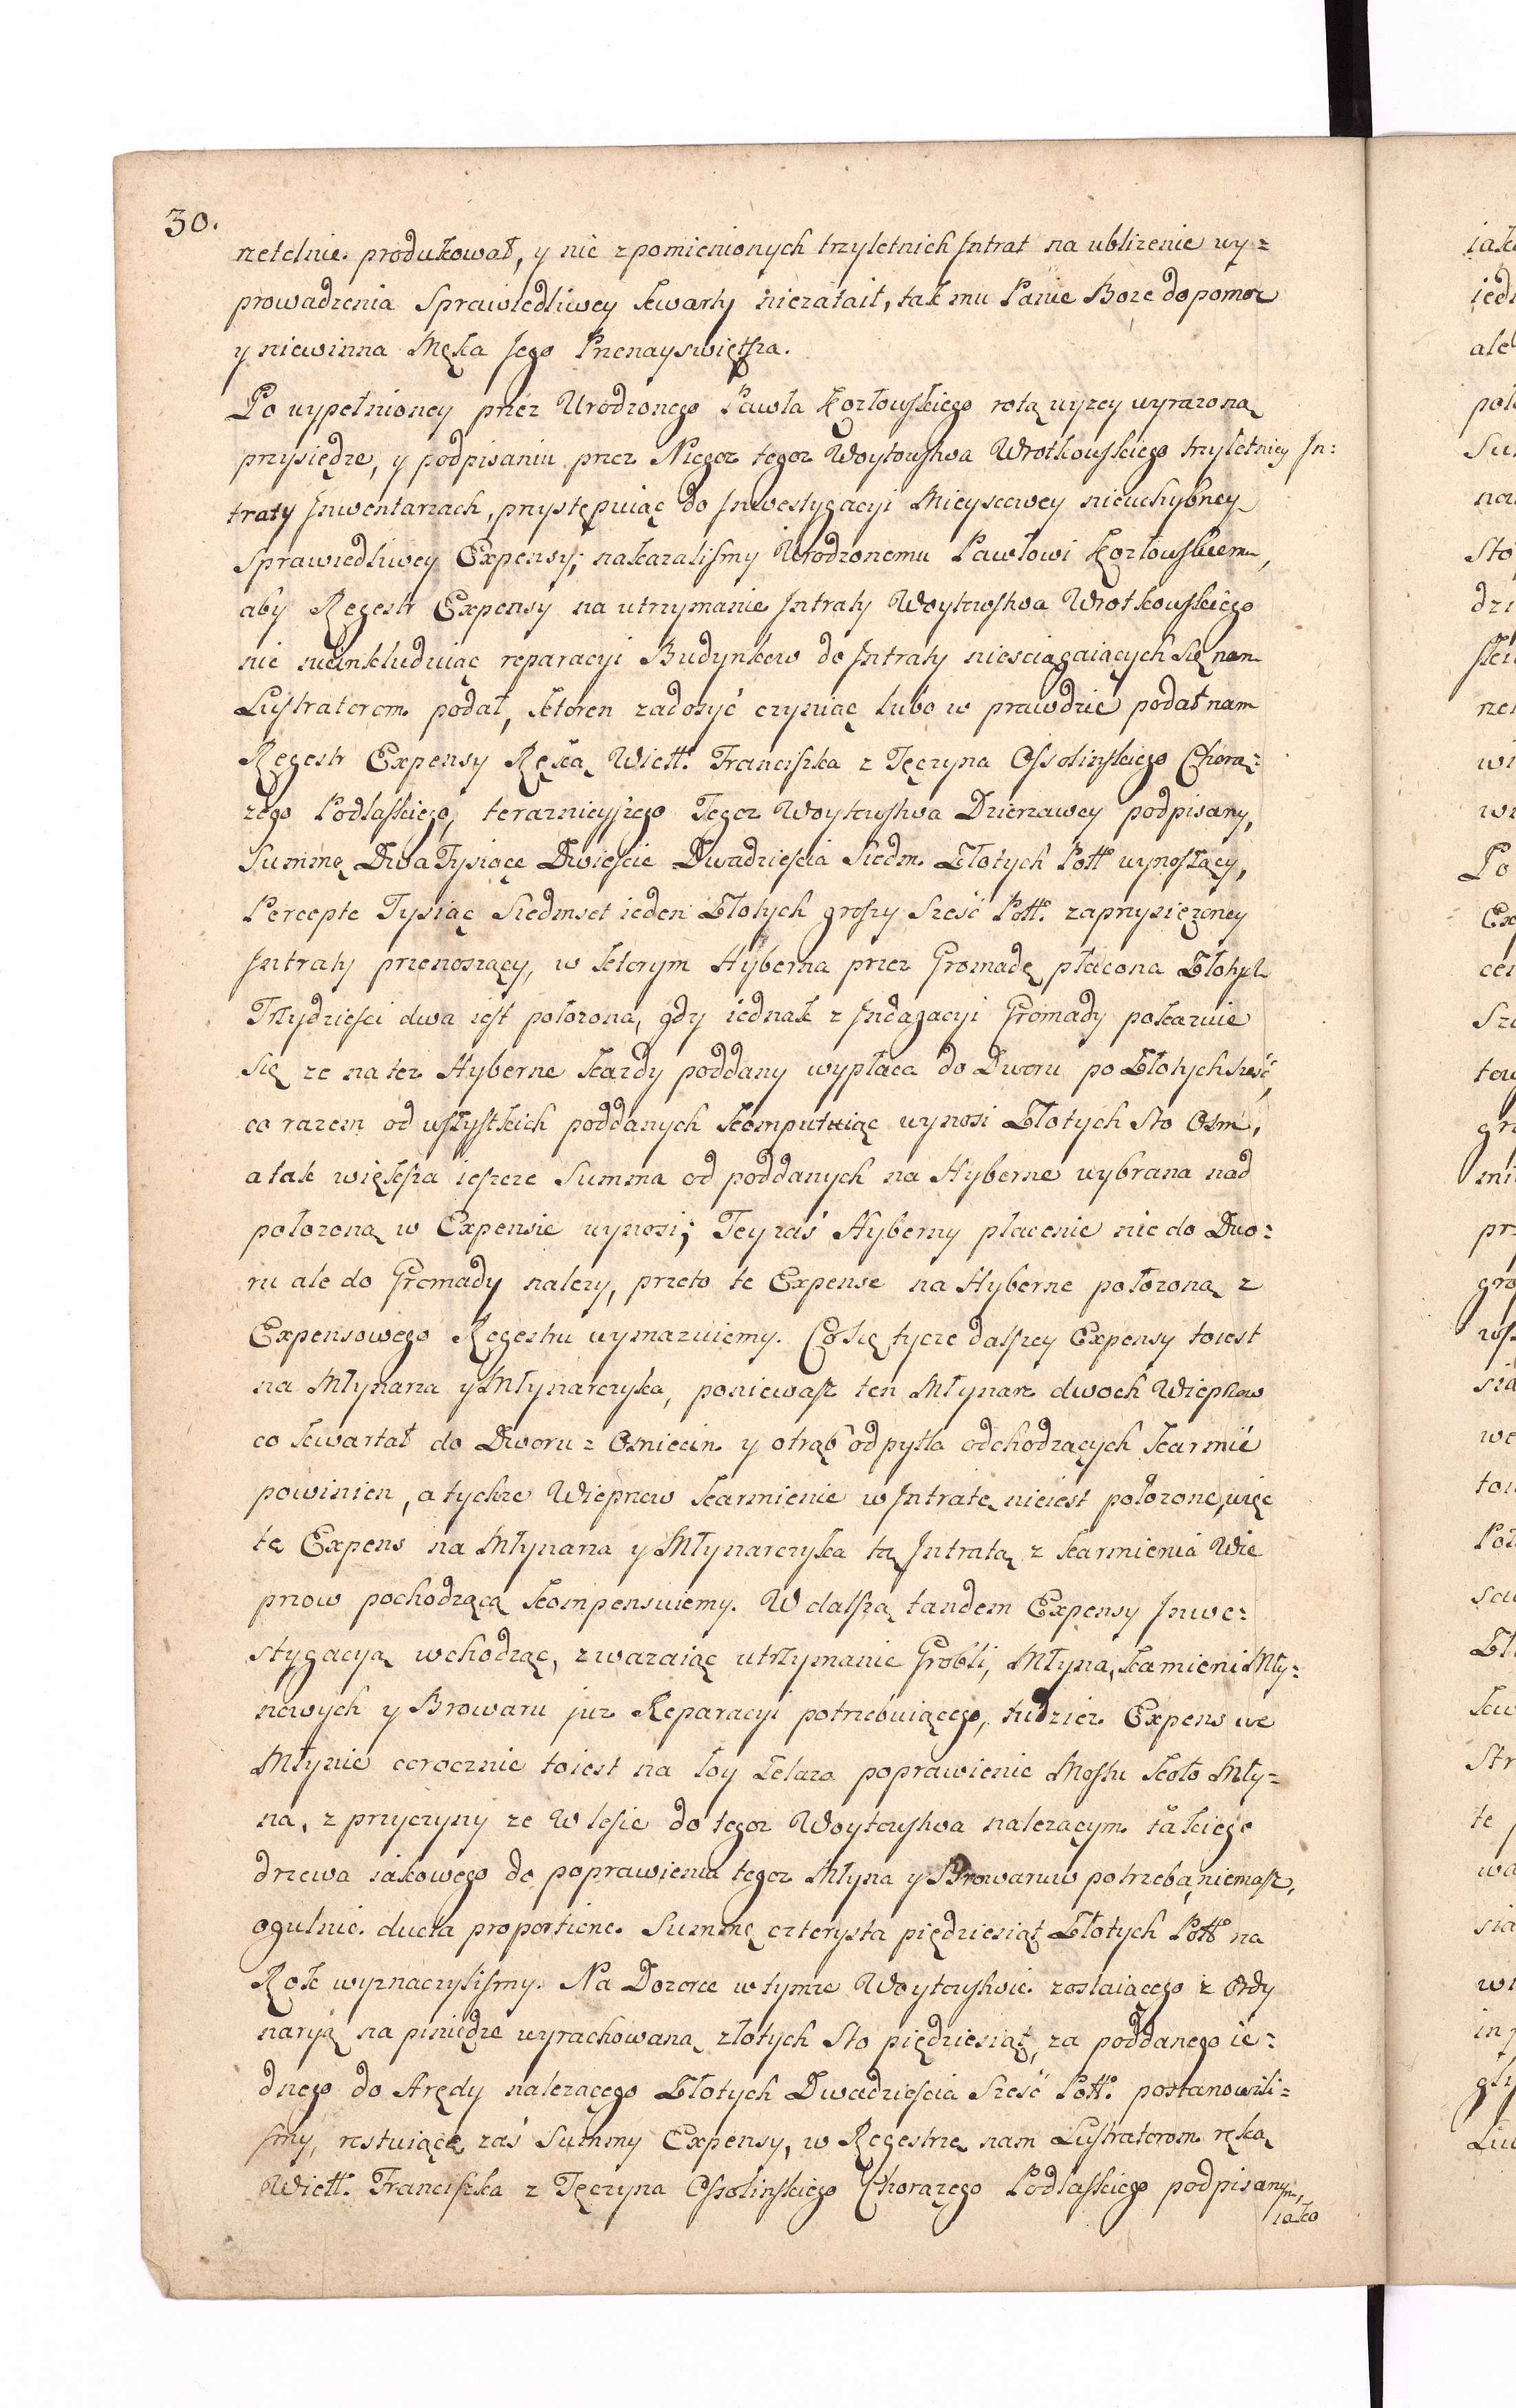 30.
rzetelnie produkował, y nic z pomienionych trzyletnich Intrat na ubliżenie wy=
prowadzenia Sprawiedliwey kwarty niezataił, tak mu Panie Boze dopomoz
y niewinna Męka Jego Przenayswiętsza.
Po wypełnioney przez Urodzonego Pawła Kozłowskiego rotą wyzey wyrazoną
przysiędze, y podpisaniu przez Niegoz tegoz Woytowstwa Wrotkowskiego trzyletniey In:
traty Inwentarzach, przystępuiąc do Inwestygacyi Mieyscowey nieuchybney
Sprawiedliwey Expensy; nakazalismy Urodzonemu Pawłowi Kozłowskiemu,
aby Regestr Expensy na utrzymanie Intraty Woytowstwa Wrotkowskiego
nic nieinkluduiąc reparacyi Budynkow do Intraty niesciągaiących Się nam
Lustratorom podał, ktoren zadosyć czyniąc lubo w prawdzie podał nam
Regestr Expensy Ręką Wielł. Franciszka z Tęczyna Ossolinskiego Chorą=
zego Podlaskiego, terazniejszego Tegoz Woytowstwa Dzierzawcy podpisany,
Summę Dwa Tysiące Dwieście Dwadzieścia Siedm Złotych Poll wynoszący,
Percepte Tysiąc Siedmset ieden Złotych groszy Sześć Poll. zaprzysięzoney
Intraty przenoszący, w ktorym Hyberna przez Gromadę płacona Złotych
Trzydzieści dwa iest połozona, gdy iednak z Indagacyi Gromady pokazuie
się ze na tez Hyberne kazdy poddany wypłaca do Dworu po Złotych sześć,
co razem od wszystkich poddanych komputuiąc wynosi Złotych Sto Osm,
a tak większa ieszcze Summa od poddanych na Hyberne wybrana nad
połozoną w Expensie wynosi; Teyzaś Hyberny płacenie nie do Dwo=
ru ale do Gromady nalezy, przeto te Expense na Hyberne połozoną z
Expensowego Regestru wymazuiemy. Co się tycze dalszey Expensy toiest
na Młynarza y Młynarczyka, poniewasz ten Młynarz dwoch Wieprzow
co kwartał do Dworu z Osniecin y otrąb od pytla odchodzących karmić
powinien, a tychze Wieprzow karmienie w Intratę nieiest połozone, więc
tę Expens na Młynarza y Młynarczyka tą Intratą z karmienia Wie
przow pochodzącą kompensuiemy. W dalszą tandem Expensy Inwe=
stygacyą wchodząc, zwazaiąc utrzymanie Grobli, Młyna, kamieni Mły=
nowych y Browaru juz Reparacyi potrzebuiącego, tudziez Expens we
Młynie corocznie toiest na łoy Zelaza poprawienie Mostu koło Mły=
na, z przyczyny ze W lesie do tegoz Woytowstwa nalezącym takiego
drzewa iakowego do poprawienia tegoz Młyna y Browaru w potrzebą, niemasz,
ogulnie ducta proportione Summę czterysta pięćdziesiąt Złotych Poll na
Rok wyznaczylismy. Na Dozorce w tymze Woytowstwie zostaiącego z Ordy
naryą na piniędze wyrachowaną złotych Sto pięćdziesiąt, za poddanego ie=
dnego do Arędy nalezącego Złotych Dwadzieścia Sześć Poll. postanowili=
smy, restuiącą zaś Summy Expensy, w Regestrze nam Lustratorom ręką
Wielł. Franciszka z Tęczyna Ossolinskiego Chorązego Podlaskiego podpisanym,
iako